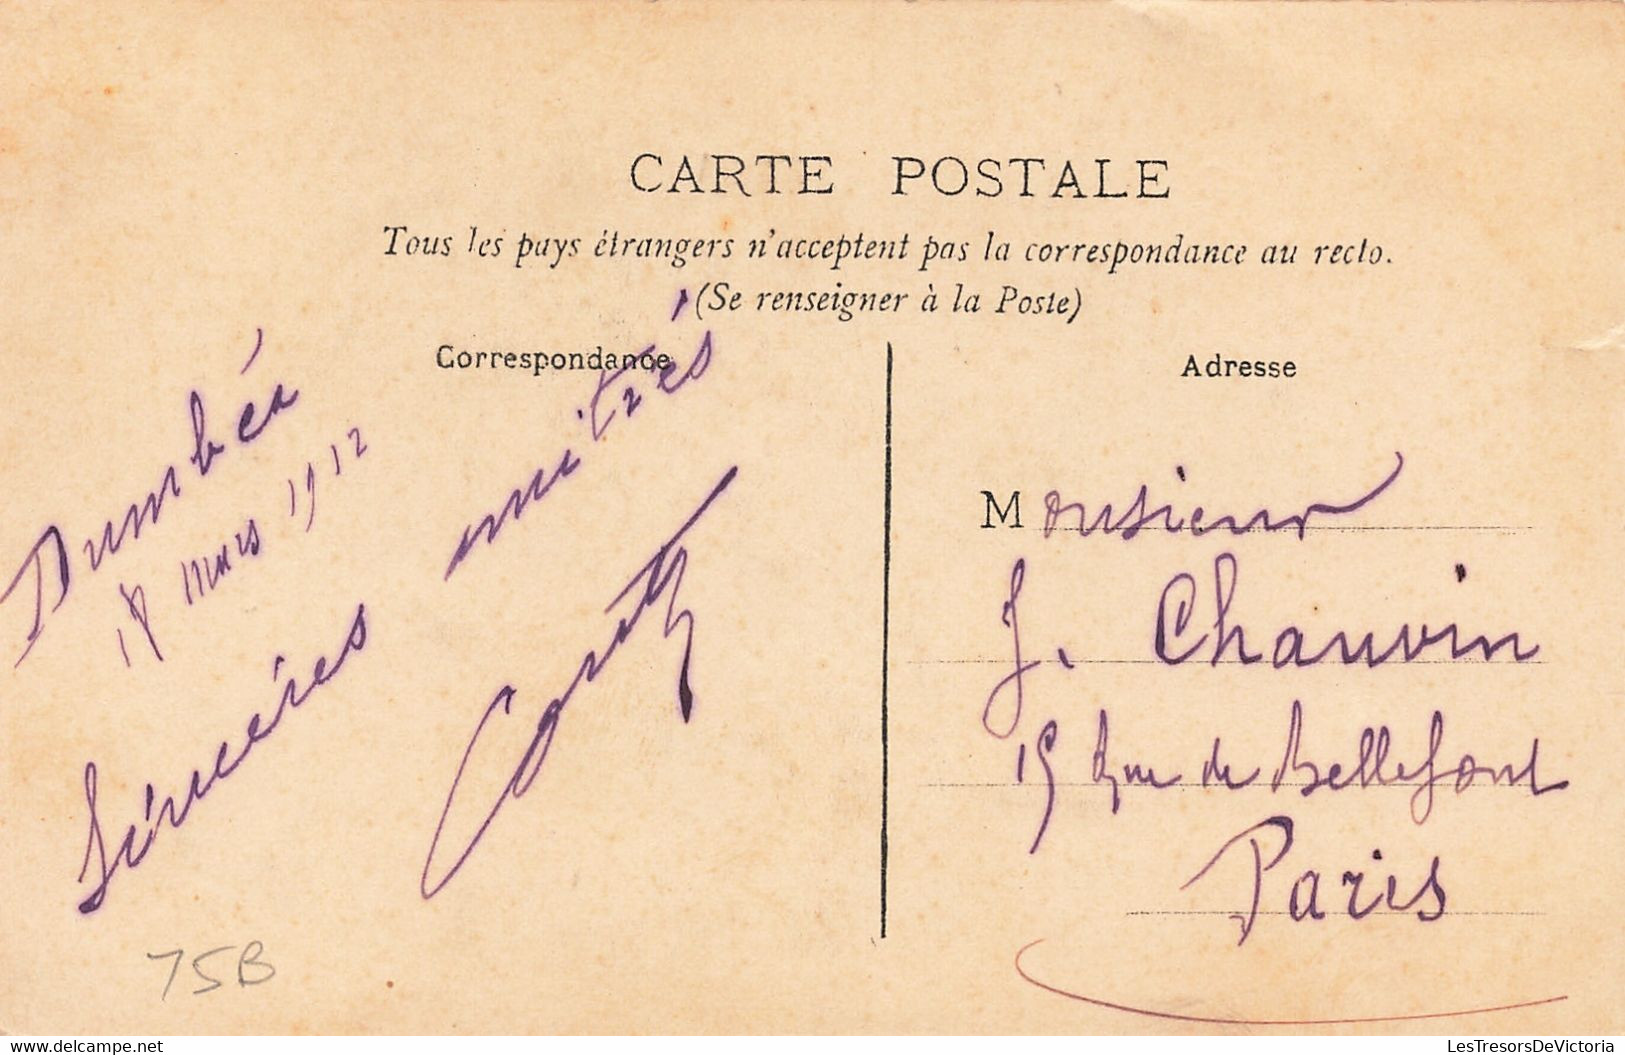 CARTE POSTALE
Tous les pays étrangers n'acceptent pas la correspondance au recto.
(Se renseigner à la Poste)
Correspondance
Adresse
18 Mars 1912
Monsieur
J. Chauvin
15 Rue de Bellefond
Paris
75B
www.delcampe.net
LesTresorsDeVictoria